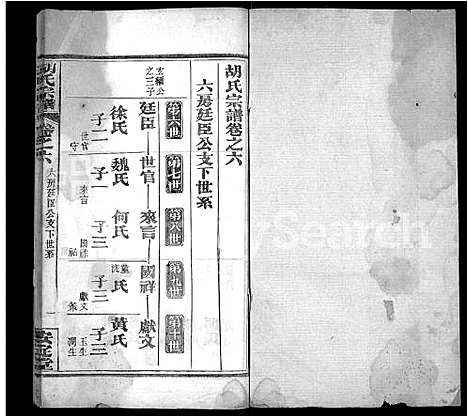 胡氏宗譜卷之六
六房廷臣公支下世系
第六世
第七世
第八世
第九世
第十世
玄績公之三子
廷臣—世官—來言—國祥—獻文
徐氏
子二
世官
守
魏氏
子一
來言
何氏
子三
國祥
祐
氏
子三
獻文
黃氏
子三
玉生
潤生
胡氏宗譜
卷之六
六房廷臣公支下世系
一
Search